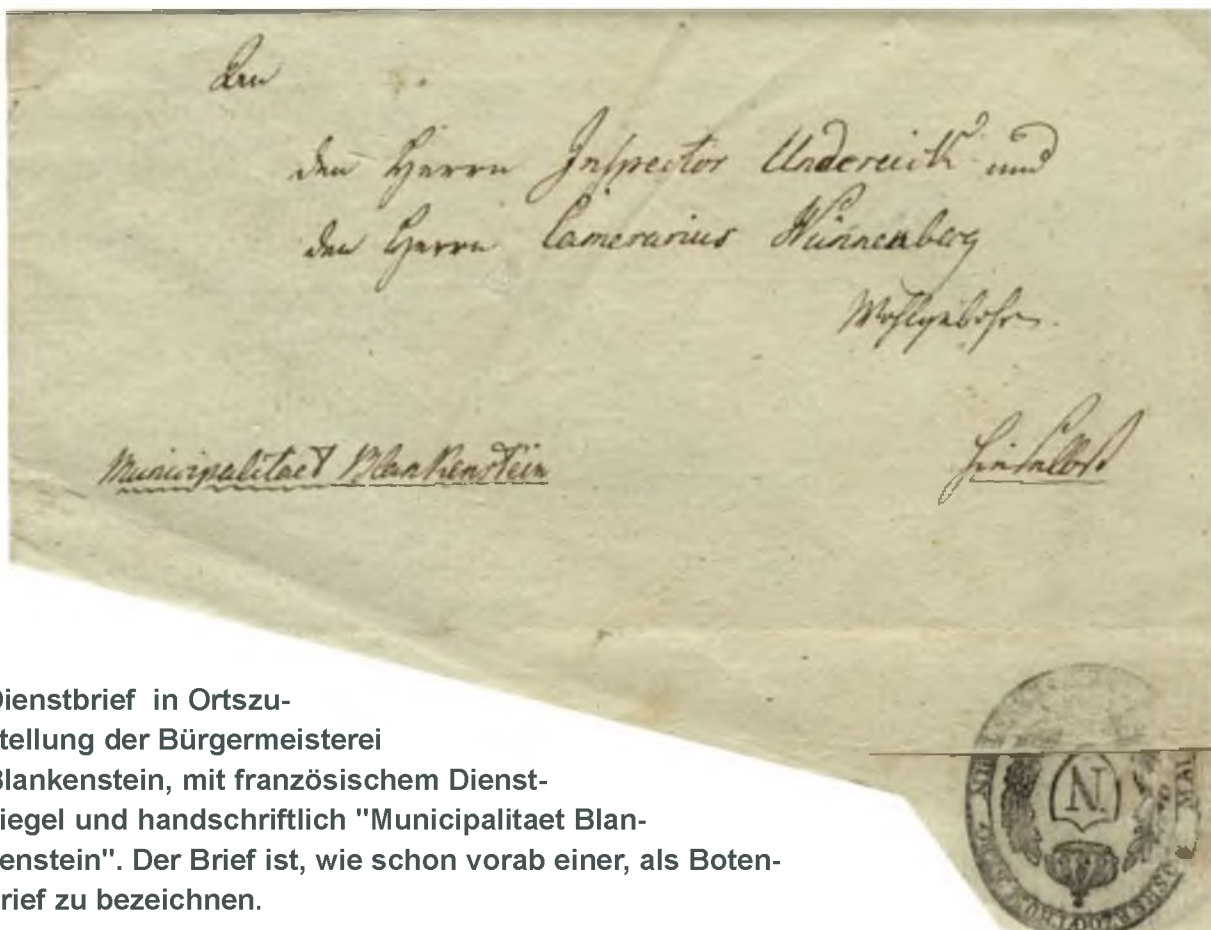 An
den Herrn Inspector Undereick und
den Herrn Camerarius Wünnenberg
Wohlgebohrn.
Municipalitaet Blankenstein
hieselbst
Dienstbrief in Ortszu-
tellung der Bürgermeisterei
Blankenstein, mit französischem Dienst-
iegel und handschriftlich "Municipalitaet Blan-
enstein". Der Brief ist, wie schon vorab einer, als Boten-
rief zu bezeichnen.
N.